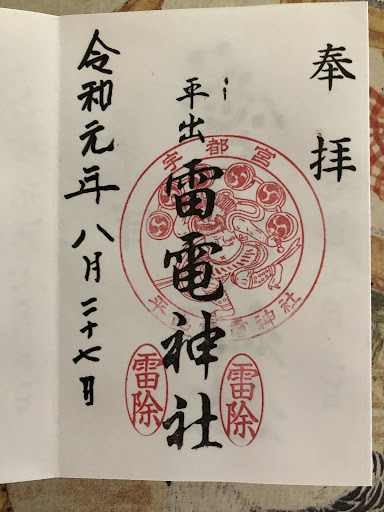 奉拝
平出
雷電神社
令和元年八月二十七日
宇都宮
平出雷電神社
雷除
雷除